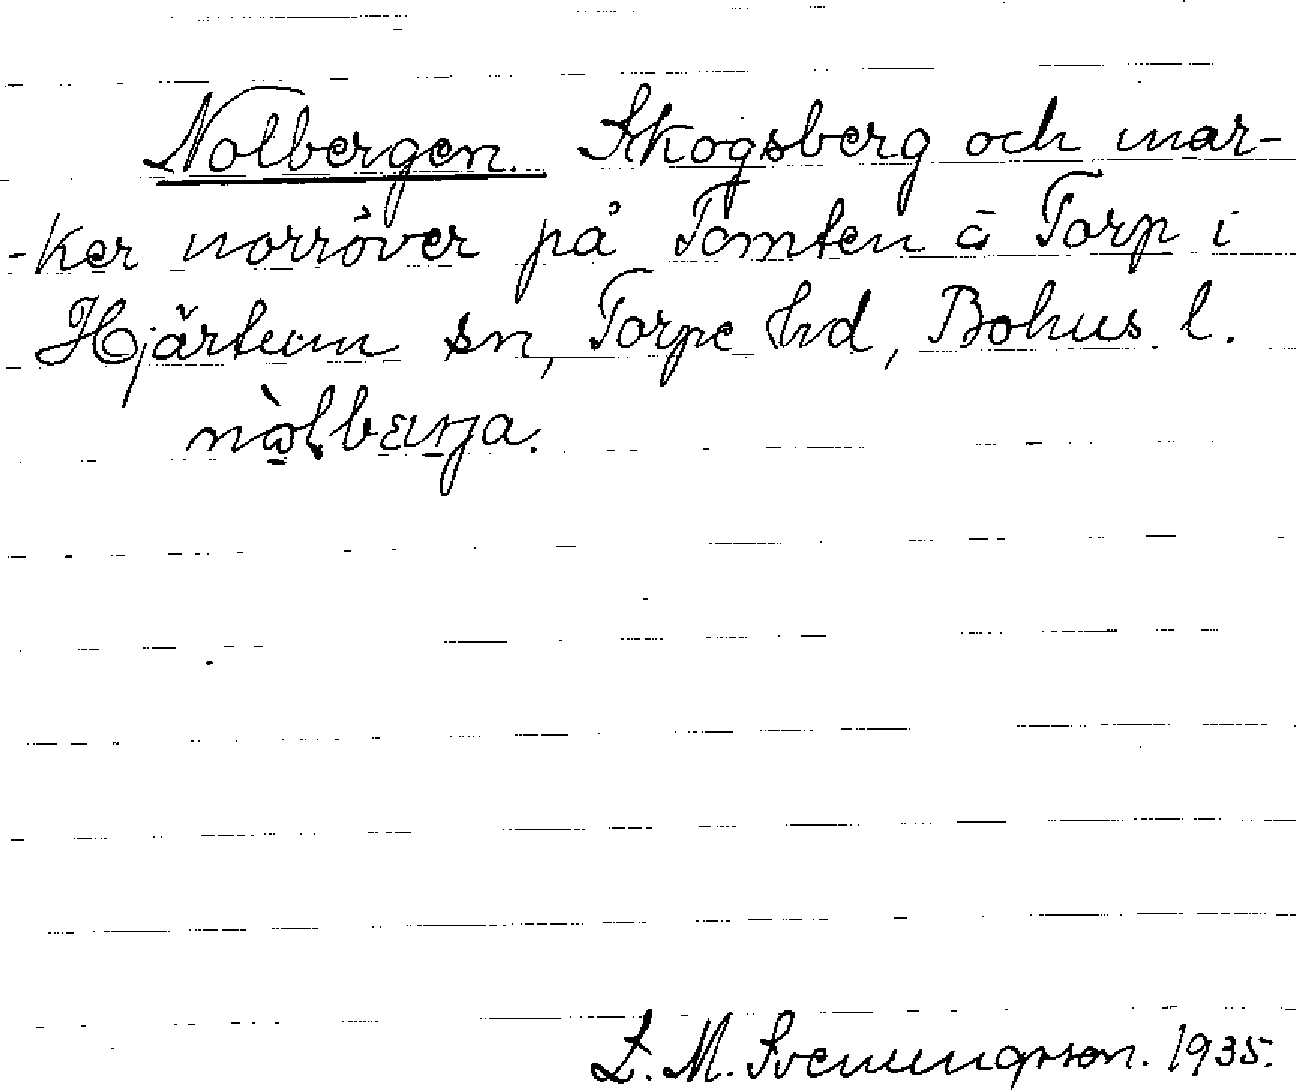 Nolbergen. Skogsberg och mar-
-ker norröver på Tomten å Torp i
Hjärtum sn, Torpe hd, Bohus l.
L. M. Svenungsson. 1935.